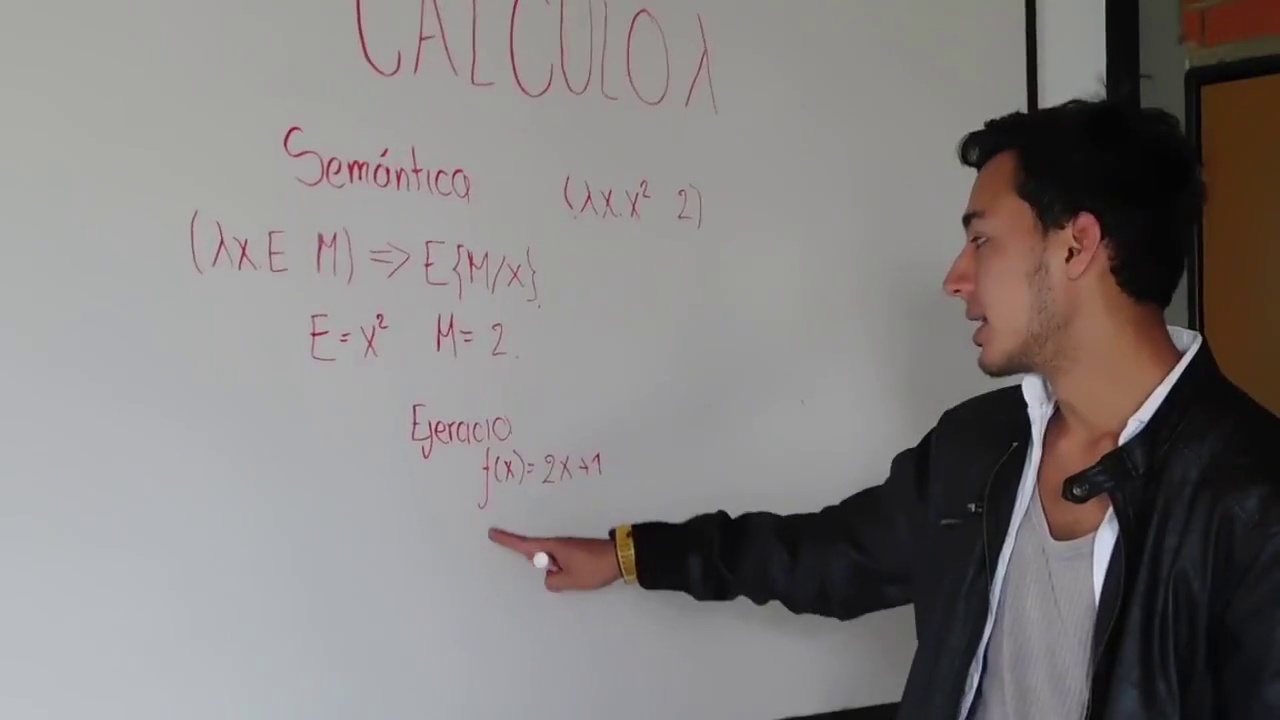 CALCULO λ
Semántica
(λx.x² 2)
(λx.E M) => E{M/x}.
E = x² M = 2.
Ejercicio
f(x) = 2x+1